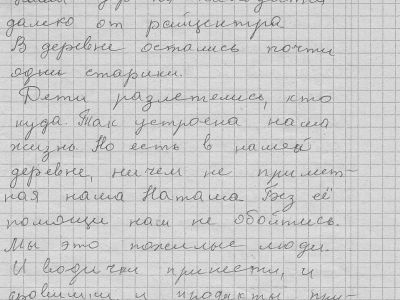 далеко от райцентра
В деревне остались почти
одни старики.
Дети разлетелись, кто
куда. Так устроена наша
жизнь. Но есть в нашей
деревне, ничем не примет-
ная наша Наташа. Без её
помощи нам не обойтись.
Мы это пожилые люди.
И водички принести, и
дровишки и продукты при-